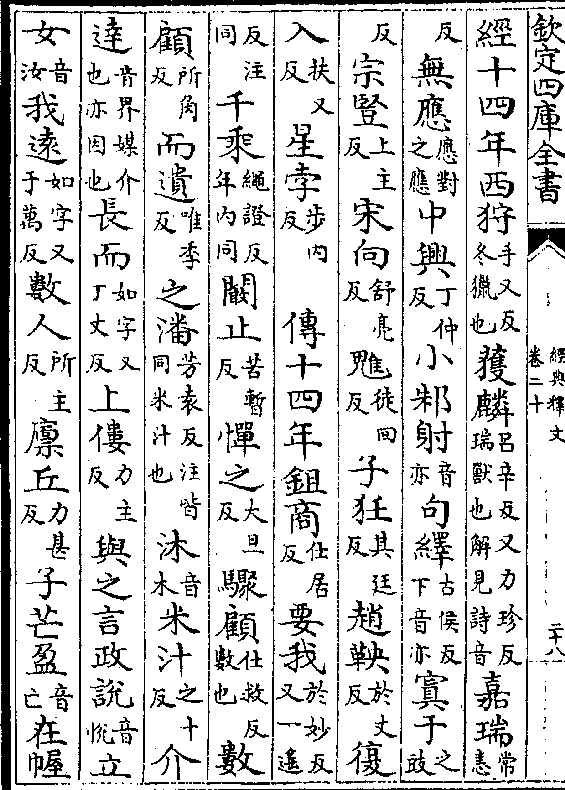 欽定四庫全書
經典釋文
卷二十
二十八
經十四年西狩手又反冬獵也獲麟呂辛反又力珍反瑞獸也解見詩音嘉瑞常恚
反無應應對之應中興丁仲反小邾射音亦句繹古侯反下音亦寘于之豉
反宗豎上主反宋向舒亮反魋徒回反子狂其廷反趙鞅於丈反復
入扶又反星孛步内反　傳十四年鉏商仕居反要我於妙反又一遙
反注同千乘繩證反年内同闞止苦暫反憚之大旦反驟顧仕救反數也數
顧所角反而遺唯季反之潘芳袁反注皆同米汁也沐音木米汁之十反介
達音界媒介也亦因也長而如字又丁丈反上僂力主反與之言政說音悅立
女音汝我遠如字又于萬反數人所主反廩丘力甚反子芒盈音亡在幄